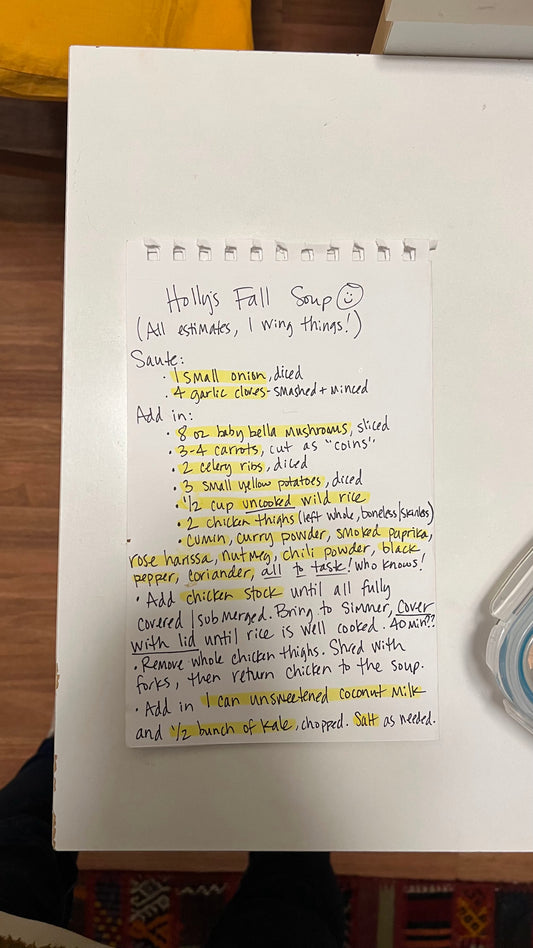 Holly's Fall Soup
(All estimates, I wing things!)
Saute:
· 1 small onion, diced
· 4 garlic cloves - smashed + minced
Add in:
· 8 oz baby bella mushrooms, sliced
· 3-4 carrots, cut as "coins"
· 2 celery ribs, diced
· 3 small yellow potatoes, diced
· 1/2 cup uncooked wild rice
· 2 chicken thighs (left whole, boneless/skinless)
· cumin, curry powder, smoked paprika,
rose harissa, nutmeg, chili powder, black
pepper, coriander, all to task! who knows!
· Add chicken stock until all fully
covered/submerged. Bring to simmer, cover
with lid until rice is well cooked. 40 min??
· Remove whole chicken thighs. Shred with
forks, then return chicken to the soup.
· Add in 1 can unsweetened coconut milk
and 1/2 bunch of kale, chopped. Salt as needed.